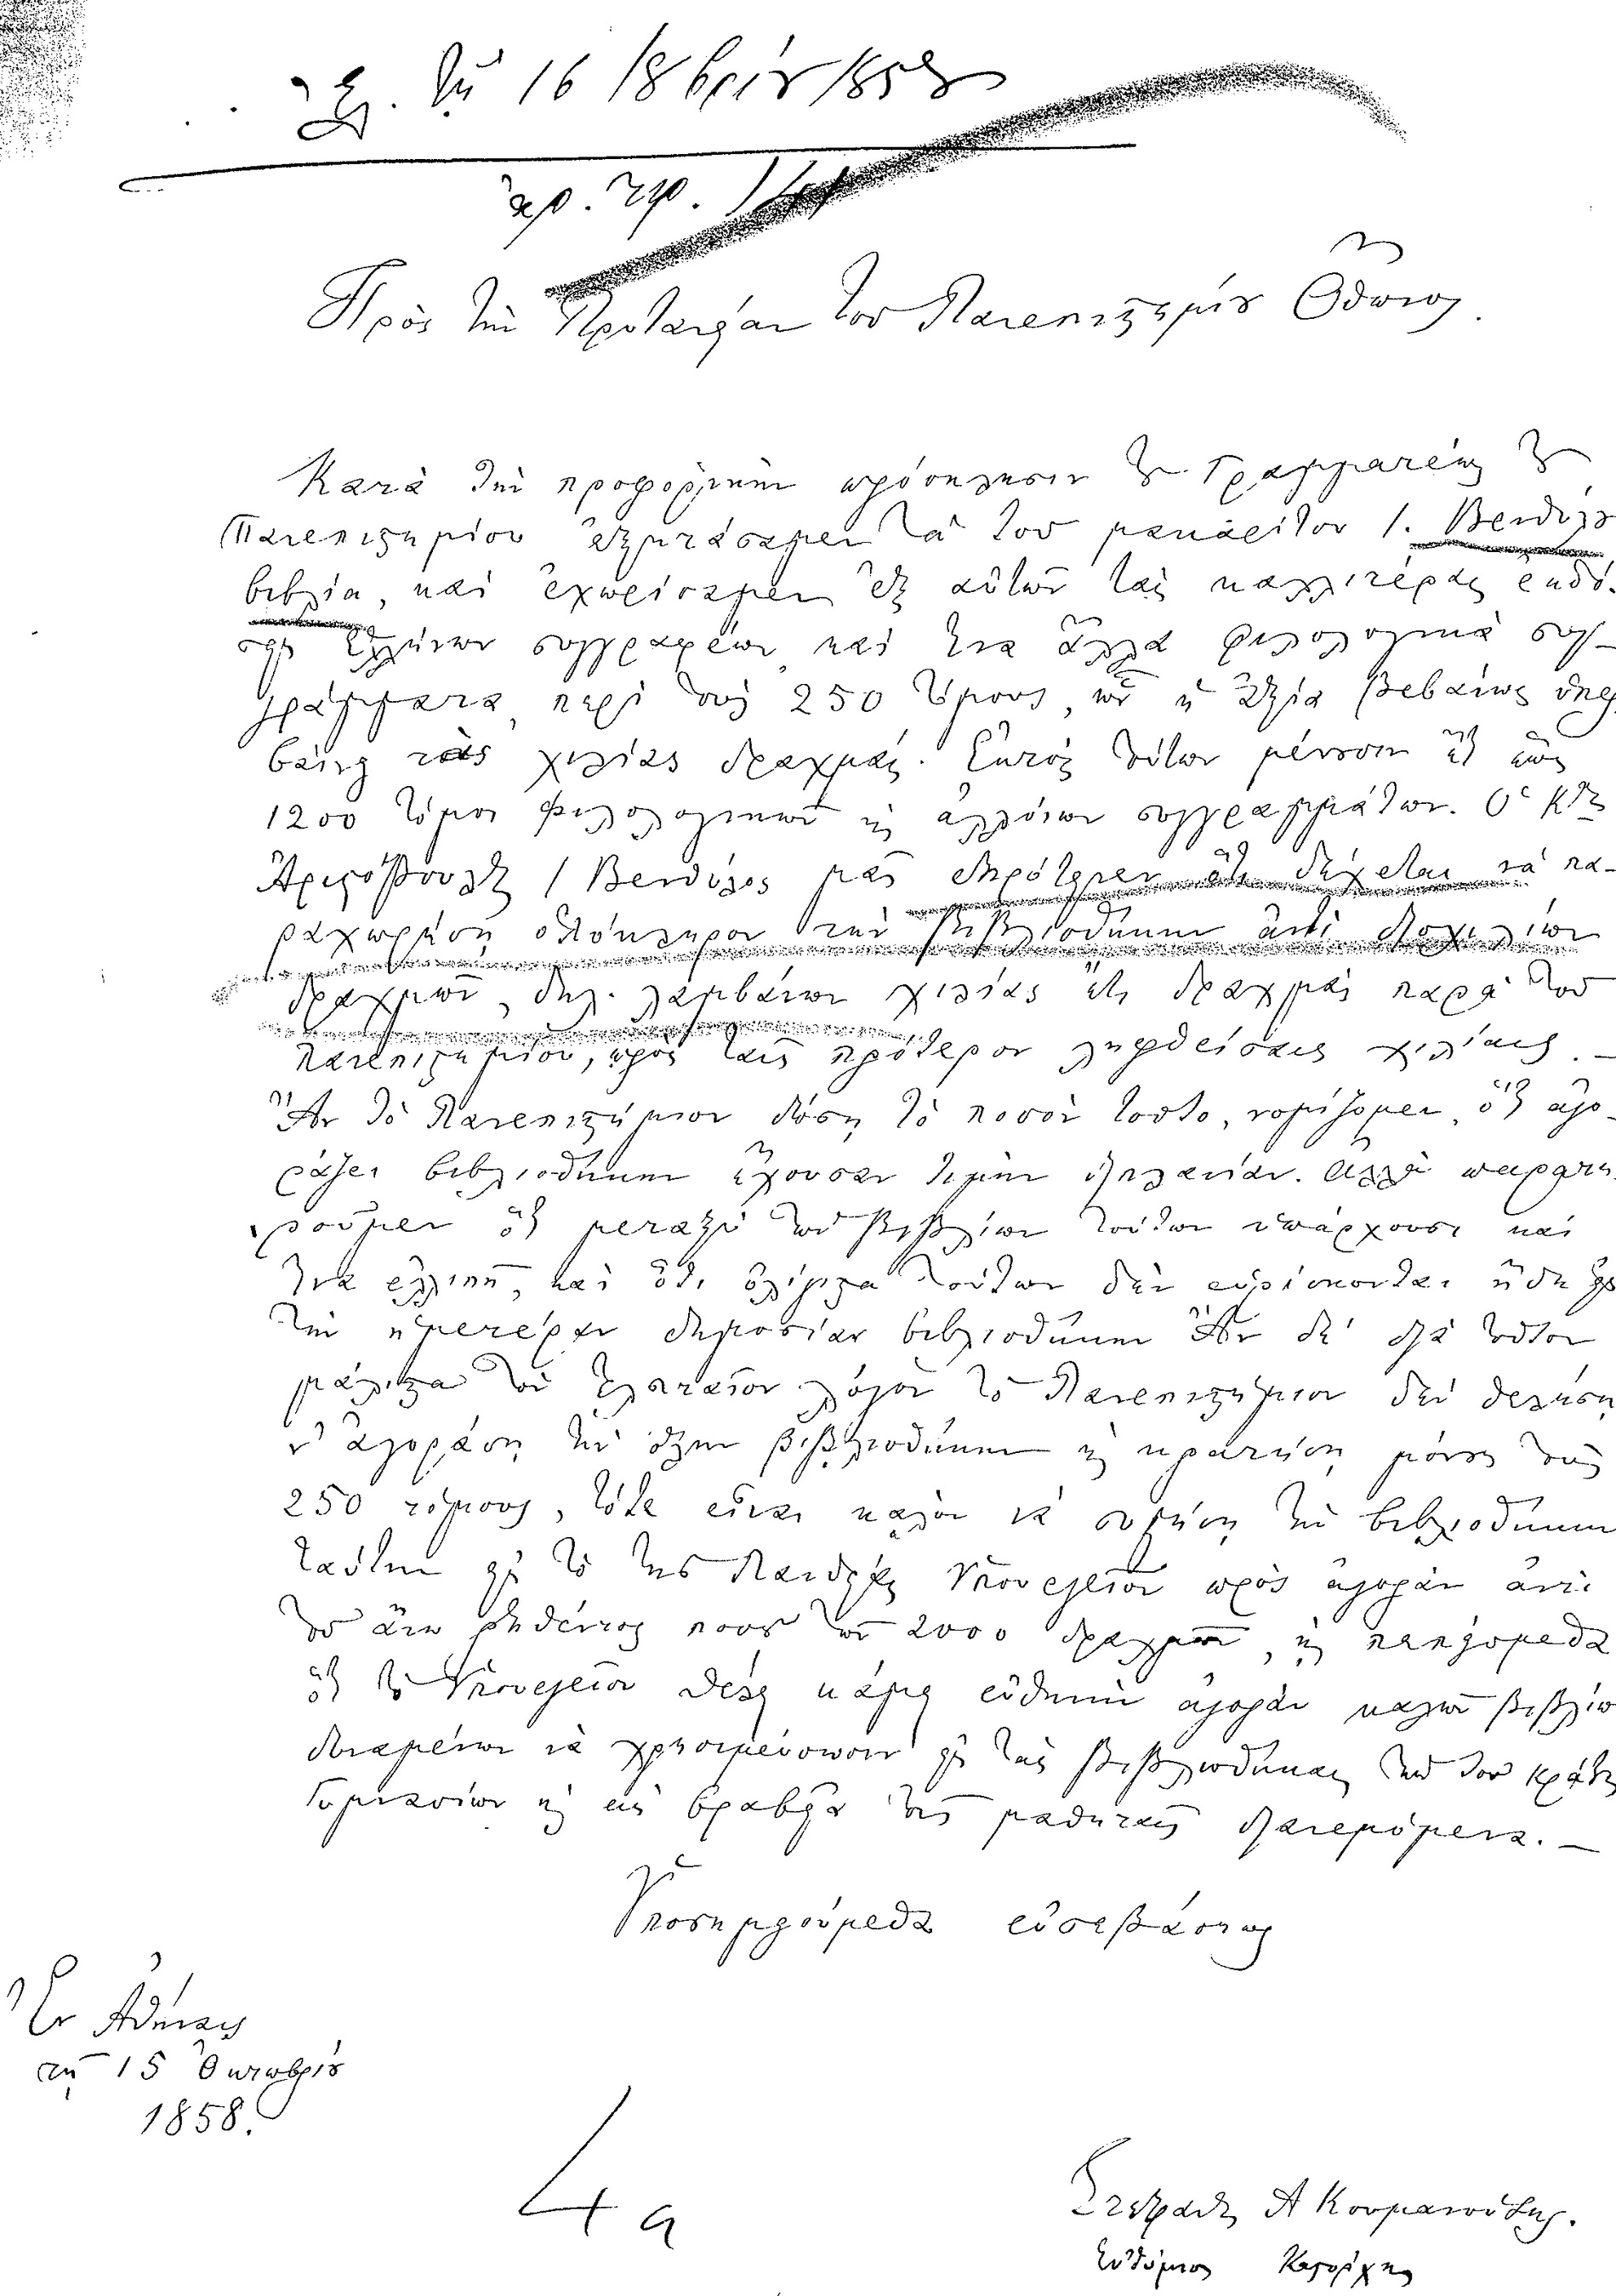 τῇ 16 / 8βρίου 1858
ἀρ. πρ.
Πρὸς τὴν Πρυτανείαν τοῦ Πανεπιστημίου Ὄθωνος.
Κατὰ τὴν προφορικὴν πρόσκλησιν τοῦ Γραμματέως τοῦ
Πανεπιστημίου ἐξητάσαμεν τὰ τοῦ μακαρίτου Ι. Βενθύλου
βιβλία, καὶ ἐχωρίσαμεν ἐξ αὐτῶν τὰς καλλιτέρας ἐκδό-
σεις Ἑλλήνων συγγραφέων καὶ τινα ἄλλα φιλολογικὰ συγ-
γράμματα περὶ τοὺς 250 τόμους, ὧν ἡ ἀξία βεβαίως ὑπερ
βαίνει τὰς χιλίας δραχμάς. Ἐκτὸς τούτων μένουσιν ἔτι ἕως
1200 τόμοι φιλολογικῶν καὶ ἀλλοίων συγγραμμάτων. Ὁ Κος
Ἀριστόβουλος Ι Βενθύλος μᾶς ἐπρότεινεν ὅτι δέχεται νὰ πα-
ραχωρήσῃ ὁλόκληρον τὴν βιβλιοθήκην ἀντὶ δισχιλίων
δραχμῶν, δηλ. λαμβάνων χιλίας ἔτι δραχμὰς παρὰ τοῦ
Πανεπιστημίου, πρὸς ταῖς πρότερον ληφθείσαις χιλίαις. —
Ἂν τὸ Πανεπιστήμιον δώσῃ τὸ ποσὸν τοῦτο, νομίζομεν ὅτι ἀγο-
ράζει βιβλιοθήκην ἔχουσαν τιμὴν διπλασίαν. Ἀλλὰ παρατη-
ροῦμεν ὅτι μεταξὺ τῶν βιβλίων τούτων ὑπάρχουσι καὶ
τινα ἐλλιπῆ, καὶ ὅτι ὀλίγιστα τούτων δὲν εὑρίσκονται ἤδη εἰς
τὴν ἡμετέραν δημοσίαν βιβλιοθήκην Ἂν δὲ διὰ τοῦτον
μάλιστα τὸν τελευταῖον λόγον τὸ Πανεπιστήμιον δὲν θελήσῃ
ν' ἀγοράσῃ τὴν ὅλην βιβλιοθήκην καὶ κρατήσῃ μόνον τοὺς
250 τόμους, τότε εἶναι καλὸν νὰ συστήσῃ τὴν βιβλιοθήκην
ταύτην εἰς τὸ τῆς Παιδείας Ὑπουργεῖον πρὸς ἀγορὰν ἀντὶ
τοῦ ἄνω ῥηθέντος ποσοῦ τῶν 2000 δραχμῶν, καὶ πειθόμεθα
ὅτι τὸ Ὑπουργεῖον θέλει κάμει εὐθηνὴν ἀγορὰν καλῶν βιβλίων
δυναμένων νὰ χρησιμεύσωσιν εἰς τὰς βιβλιοθήκας τῶν τοῦ κράτους
Γυμνασίων καὶ εἰς βραβεῖα τοῖς μαθηταῖς διανεμόμενα. —
Ὑποσημειούμεθα εὐσεβάστως
Ἐν Ἀθήναις
τῇ 15 Ὀκτωβρίου
1858.
Στέφανος Α Κουμανούδης.
Εὐθύμιος Καστόρχης